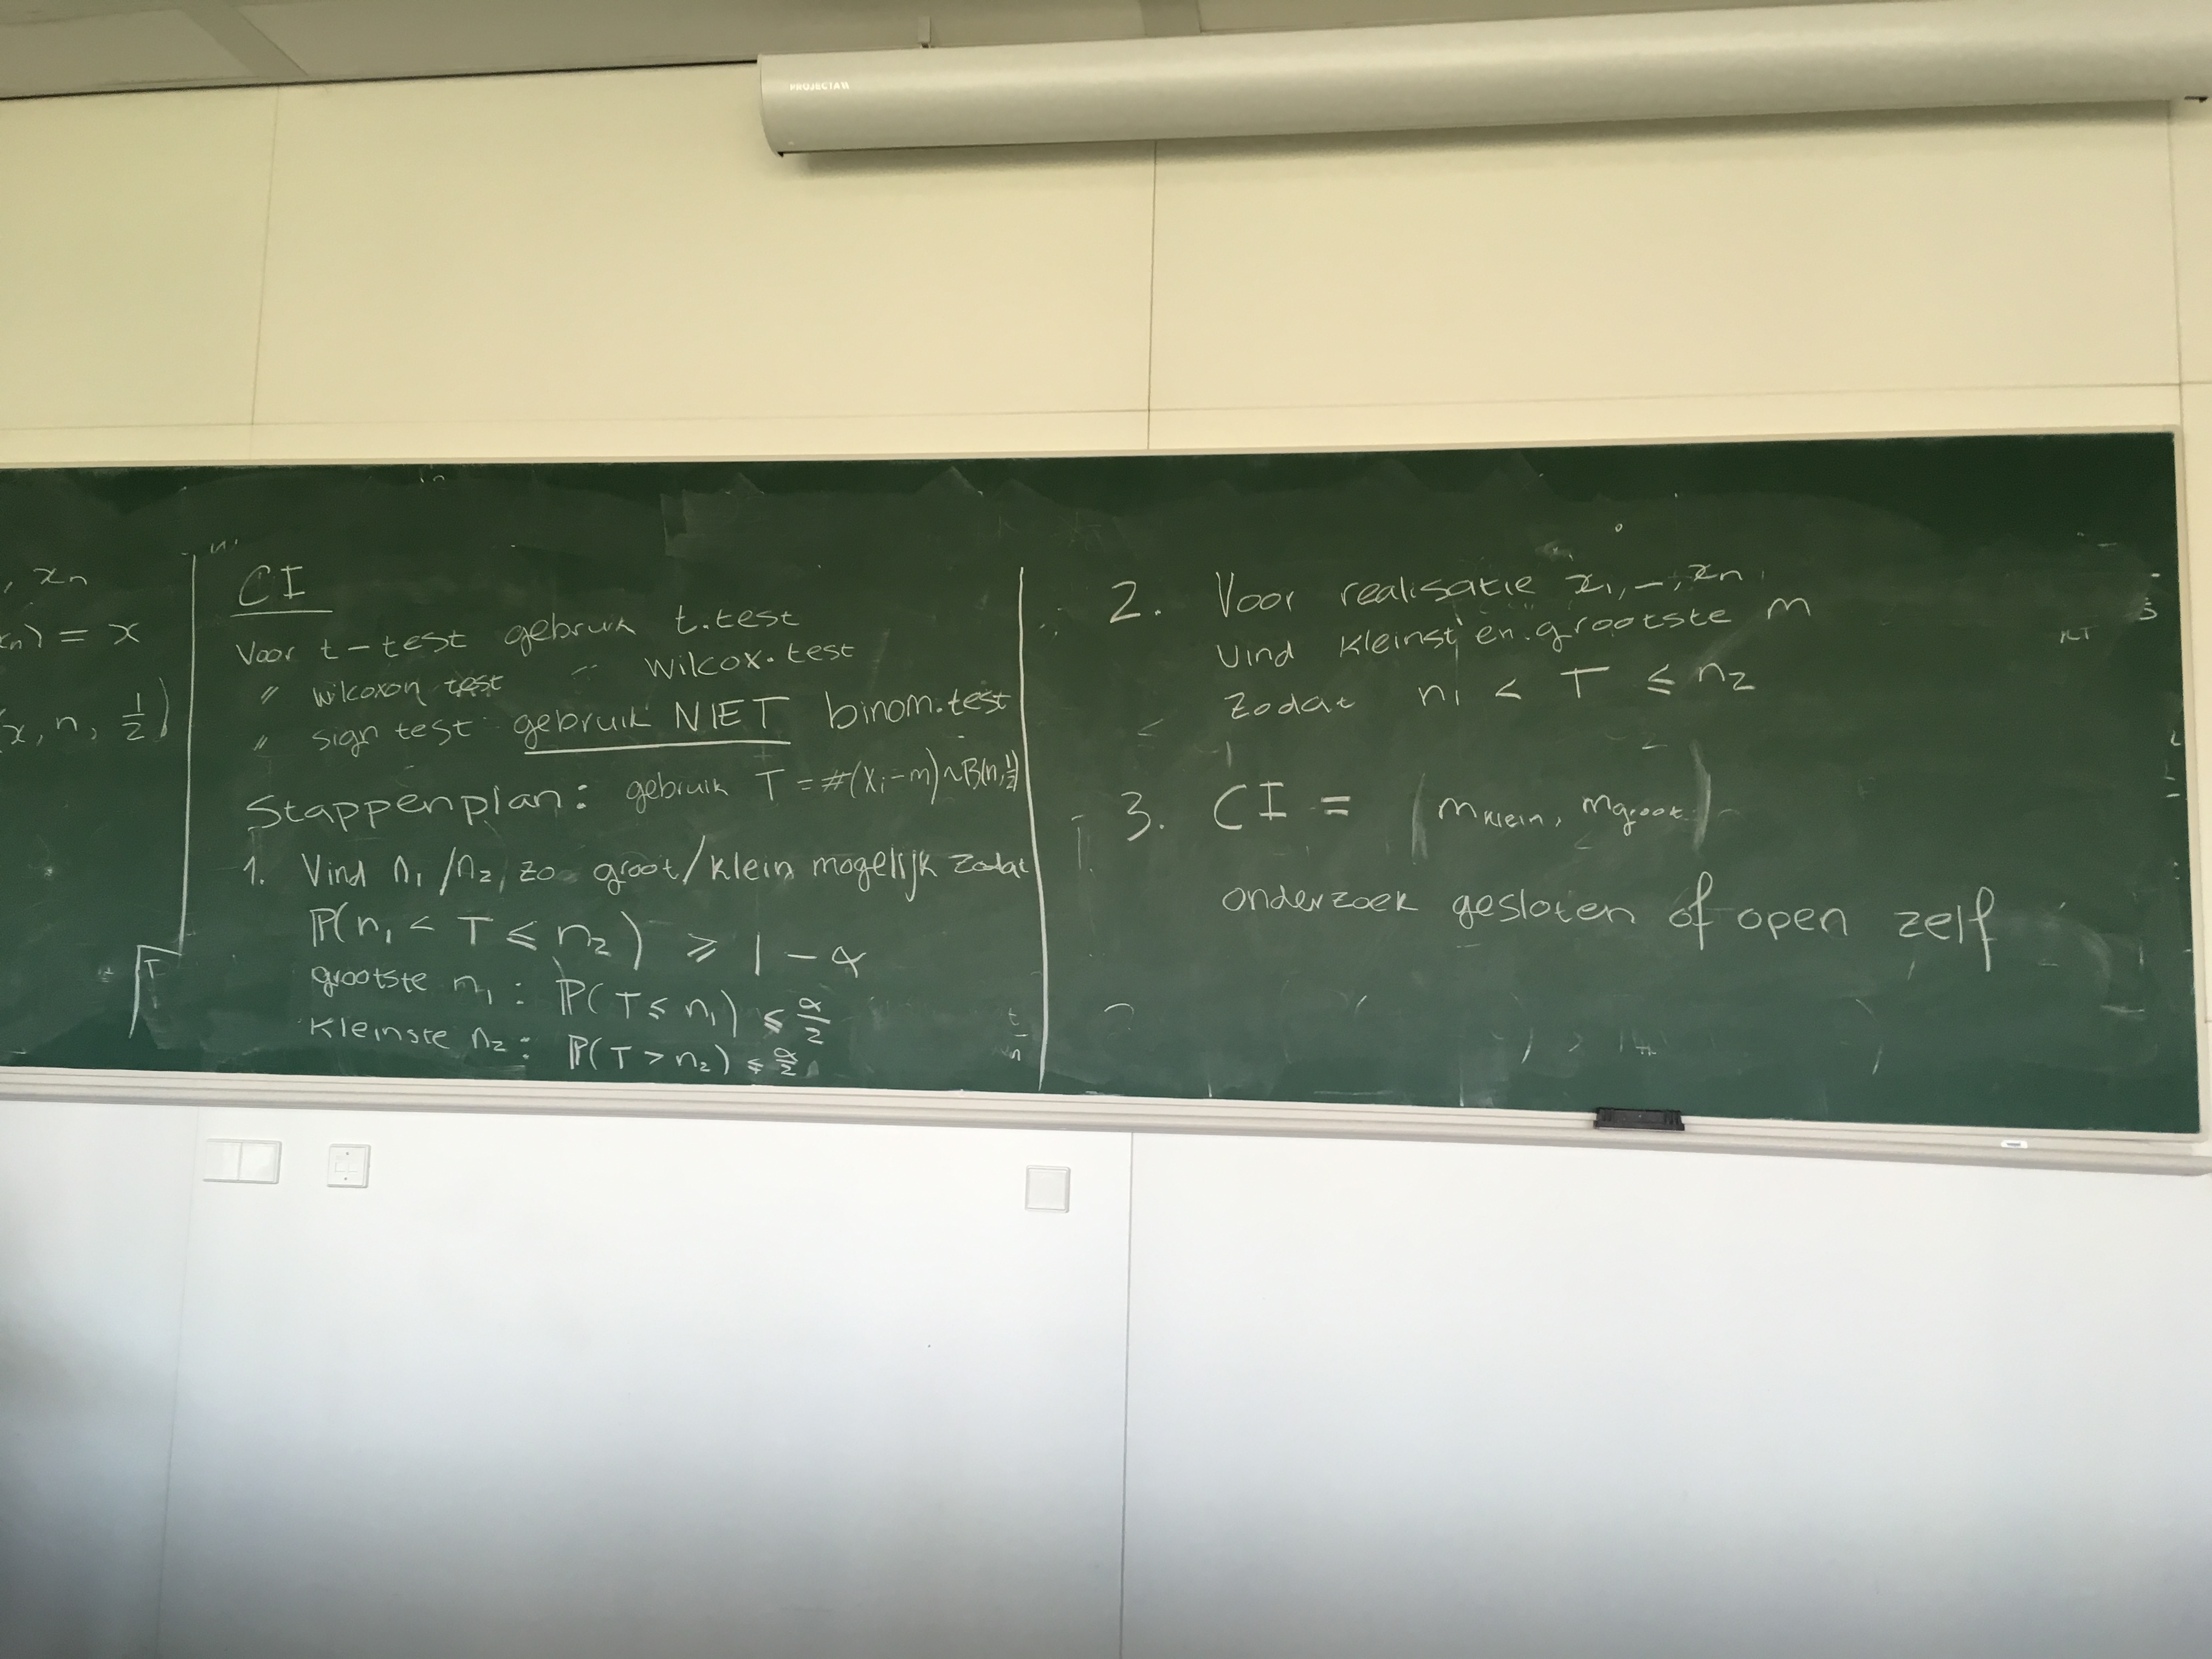 PROJECTA
, xₙ
xₙ) = x
x, n, 1/2)
CI
Voor t-test gebruik t.test
〃 wilcoxon test 〃 wilcox.test
〃 sign test gebruik NIET binom.test
Stappenplan: gebruik T = #(Xᵢ-m) ~ B(n, 1/2)
1. Vind n₁/n₂ zo groot/klein mogelijk zodat
ℙ(n₁ < T ≤ n₂) ≥ 1 - α
grootste n₁: ℙ(T ≤ n₁) ≤ α/2
kleinste n₂: ℙ(T > n₂) ≤ α/2
2. Voor realisatie x₁, -, xₙ
vind kleinst en grootste m
zodat n₁ < T ≤ n₂
3. CI = (m_klein, m_groot)
onderzoek gesloten of open zelf